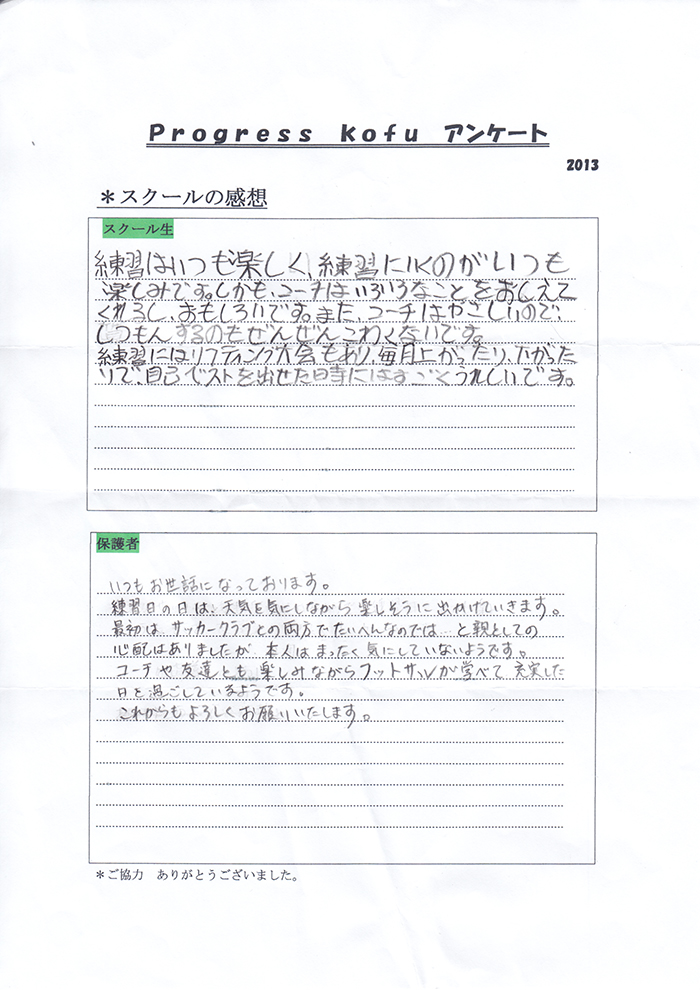 Progress kofu アンケート
2013
＊スクールの感想
スクール生
練習はいつも楽しく、練習に行くのがいつも
楽しみです。しかも、コーチはいろいろなことをおしえて
くれるし、おもしろいです。また、コーチはやさしいので、
しつもんするのもぜんぜんこわくないです。
練習にはリフティング大会もあり、毎月上がったり、下がった
りで、自己ベストを出せた時にはすごくうれしいです。
保護者
いつもお世話になっております。
練習日の日は、天気を気にしながら楽しそうに出かけていきます。
最初は、サッカークラブとの両方でたいへんなのでは…と親としての
心配はありましたが、本人はまったく気にしていないようです。
コーチや友達とも楽しみながらフットサルが学べて充実した
日を過ごしているようです。
これからもよろしくお願いいたします。
＊ご協力　ありがとうございました。